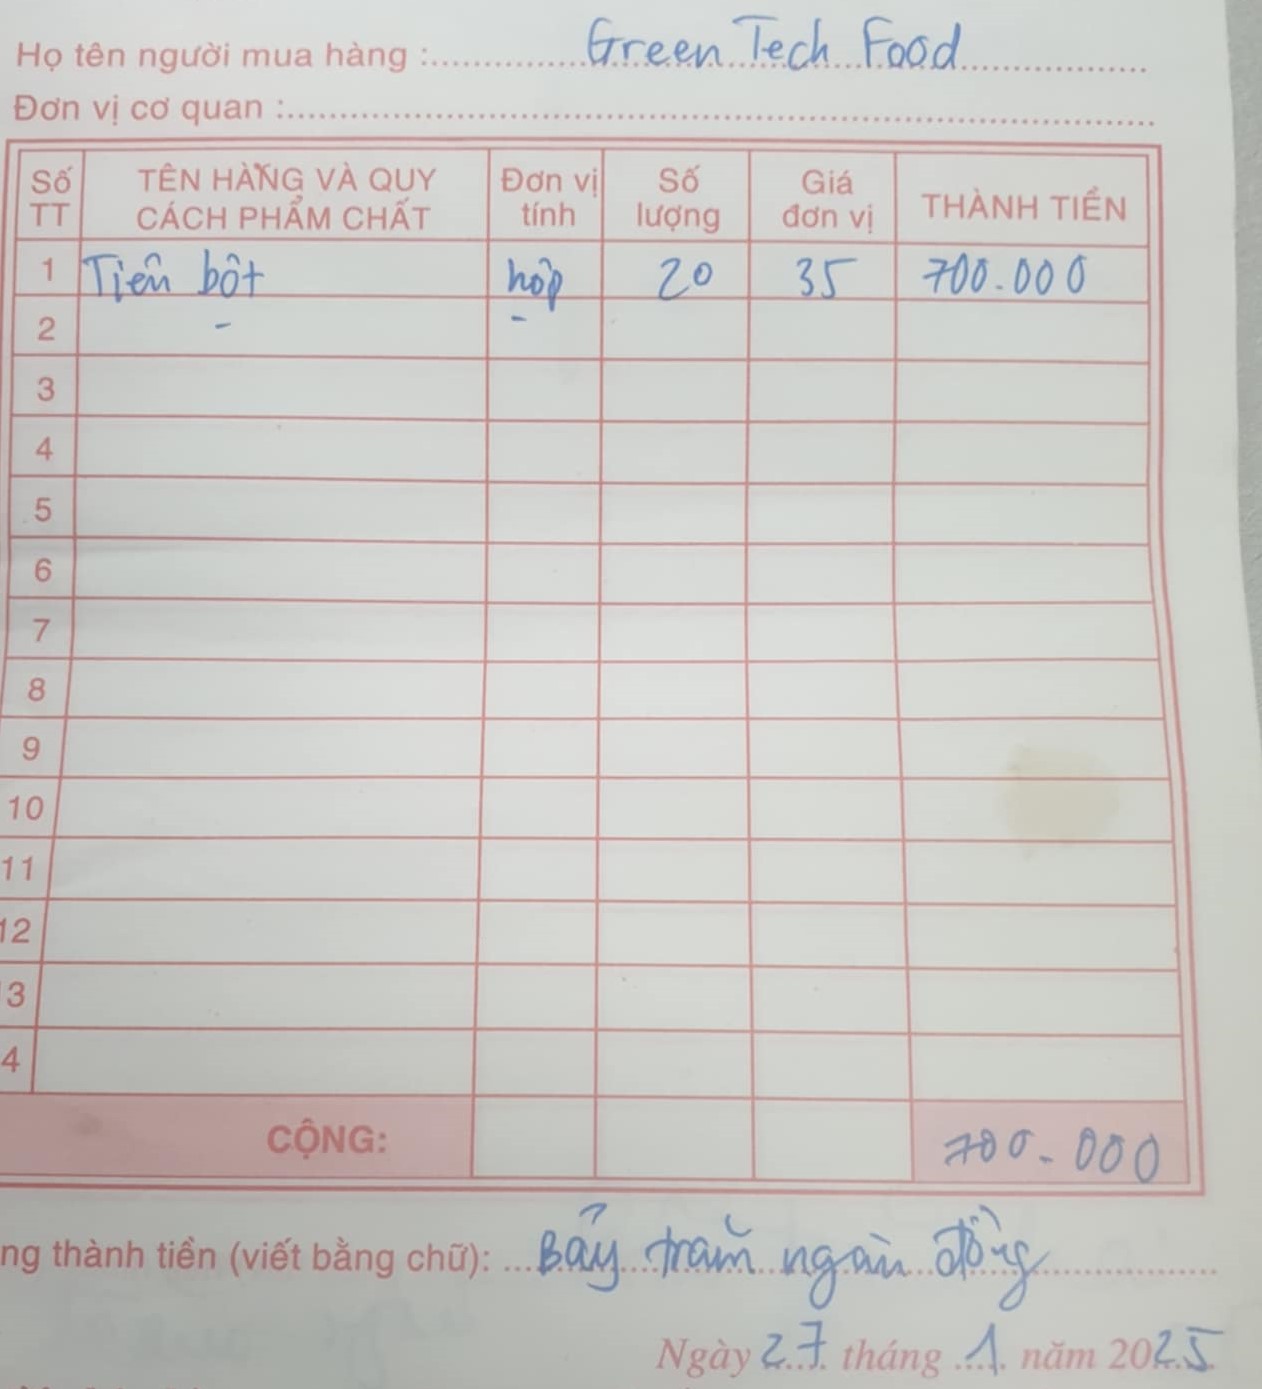 Họ tên người mua hàng : Green Tech Food
Đơn vị cơ quan :
Số TT TÊN HÀNG VÀ QUY CÁCH PHẨM CHẤT Đơn vị tính Số lượng Giá đơn vị THÀNH TIỀN
1 Tiên bột hộp 20 35 700.000
2
3
4
5
6
7
8
9
10
11
12
3
4
CỘNG: 700.000
ng thành tiền (viết bằng chữ): Bảy trăm ngàn đồng
Ngày 27 tháng 1 năm 2025